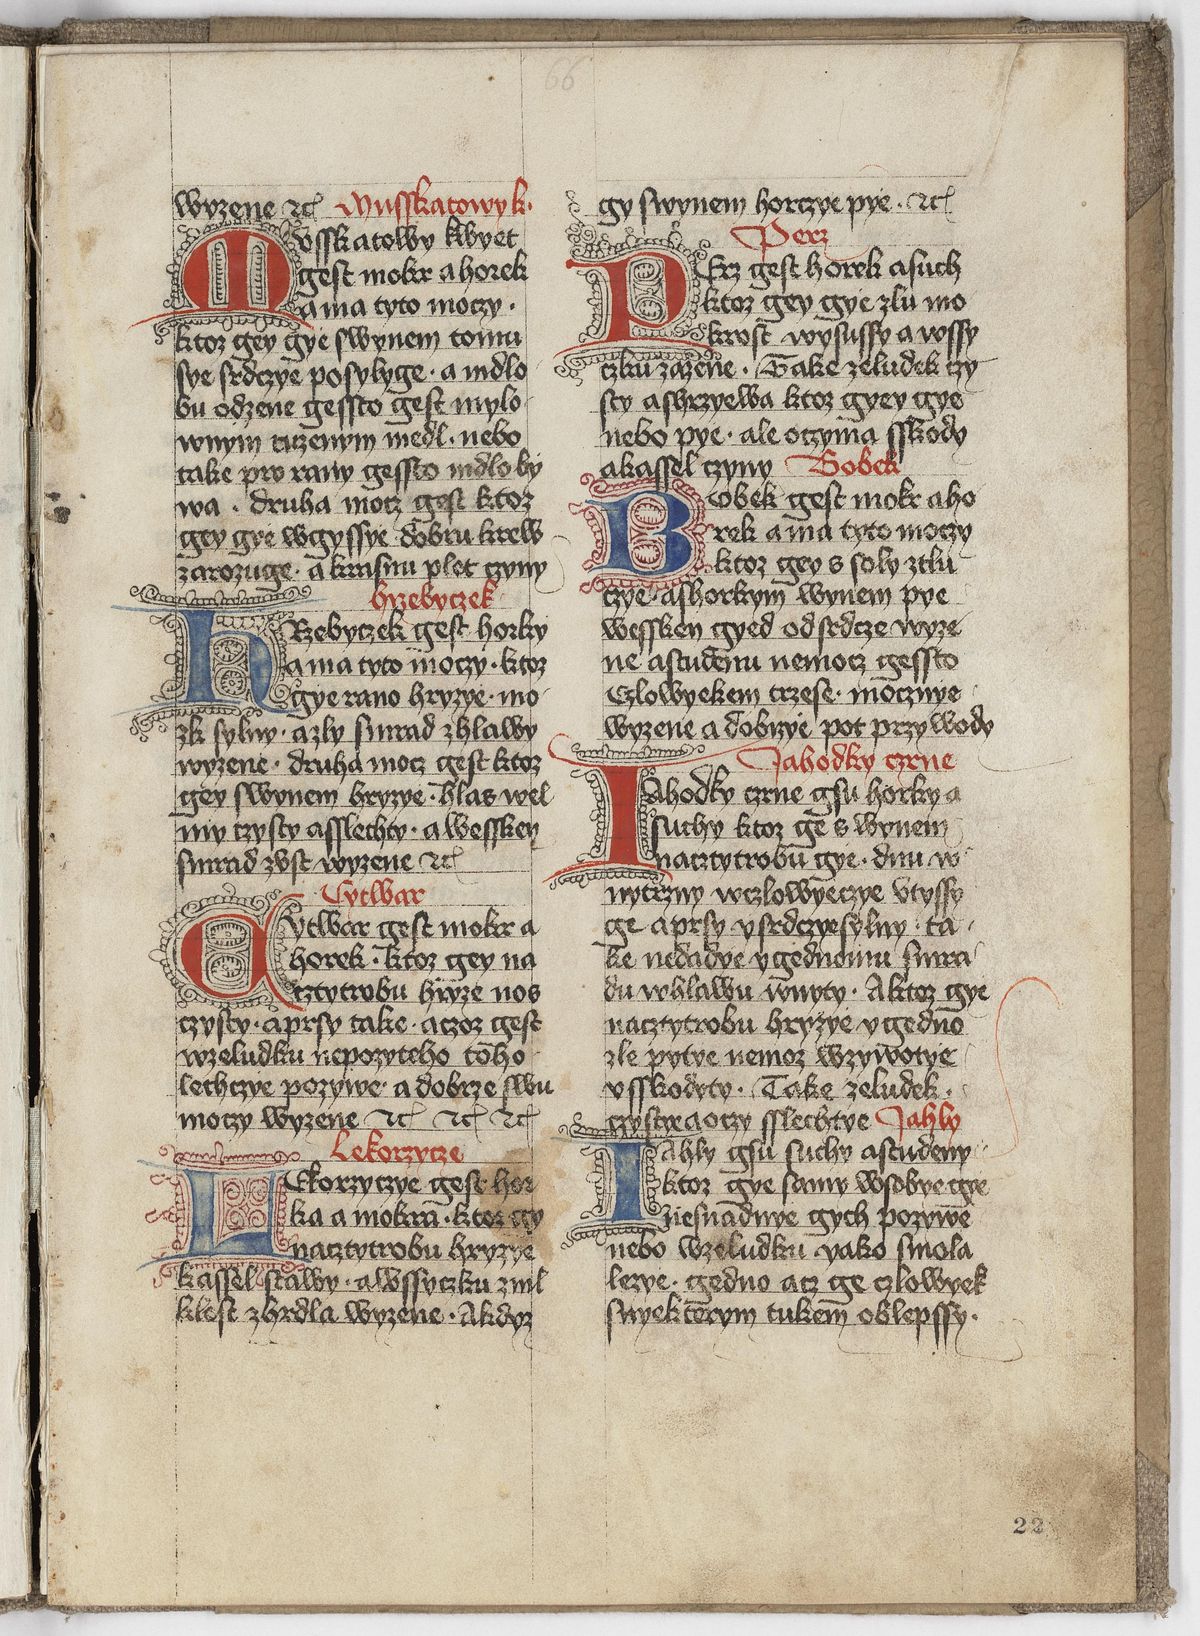 66
wyzene ⁊cꝭ Musskatowy k.
Musskatowy kwyet
gest mokr a horek
a ma tyto moczy ·
ktoz gey gye s wynem tomu
sye srdczye posylyge · a mdlo
bu odzene gessto gest mylo
wnym rizenym medl · nebo
take pro rany gessto mdlo by
wa · druha mocz gest ktoz
gey gye w gyssye dobru krew
zarozuge · a krasnu plet czyny
hrzebyczek
HRzebyczek gest horky
a ma tyto moczy · ktoz
gye rano hryzye · mo
zk sylny · a zly smrad z hlawy
wyzene · druha mocz gest ktoz
gey s wynem hryzye · hlas wel
my czysty a sslechty · a wessken
smrad z vst wyzene ⁊cꝭ
Cytwar
Cytwar gest mokr a
horek · ktoz gey na
cztytrobu hryze nos
czysty · a prsy take · a czoz gest
w zeludku nepozyteho toho
lechczye pozywe · a dobrze swu
moczy wyzene ⁊cꝭ ⁊cꝭ ⁊cꝭ
Lekorzycze
LEkorzyczye gest hor
ka a mokra · ktoz gy
nacztytrobu hryzye
kassel stawy · a wssyczku zml
klest z hrdla wyzene · A kdyz
gy s wynem horczye pye · ⁊cꝭ
Perz
PErz gest horek a such
ktoz gey gye zlu mo
krost wysussy a wssy
czku zazene · Take zeludek czy
sty a shrzyewa ktoz gyey gye
nebo pye · ale oczyma sskody
a kassel czyny Bobek
Bobek gest mokr a ho
rek a ma tyto moczy
ktoz gey s soly ztlu
czye a s horkym wynem pye
wessken gyed od srdcze wyze
ne a studenu nemocz gessto
czlowyekem trzese · mocznye
wyzene a dobrzye pot przywody
Jahodky czrne
Iahodky czrne gsu horky a
suchy ktoz ge s wynem
nacztytrobu gye · dnu w
nytrzny w czlowyeczye vtyssy
ge a prsy y srdczye sylny · ta
ke nedadye ygednomu smra
du w hlawu wnyty · A ktoz gye
nacztytrobu hryzye ygedno
zle pytye nemoz w zywotye
vsskodyty · Take zeludek ·
czystye a oczy sslechtye Jahly
Iahly gsu suchy a studeny
ktoz gye samy w sobye gye
niesnadnye gych pozywe
nebo w zeludku yako smola
lezye · gedno acz ge czlowyek
s nyekterym tukem oblepssy ·
22